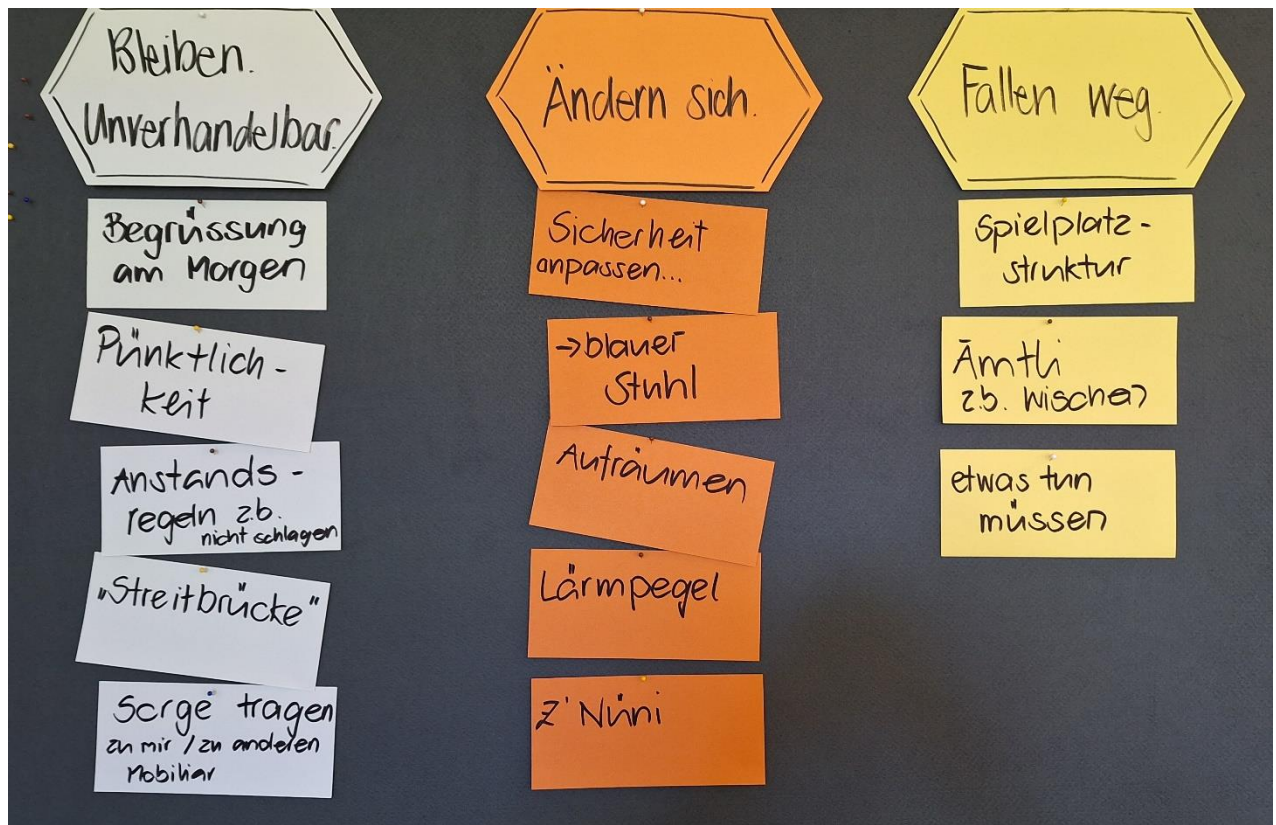 Bleiben.
Unverhandelbar.
Begrüssung
am Morgen
Pünktlich-
keit
Anstands-
regeln z.b.
nicht schlagen
"Streitbrücke"
Sorge tragen
zu mir / zu anderen
Mobiliar
Ändern sich.
Sicherheit
anpassen...
→ blauer
Stuhl
Aufräumen
Lärmpegel
Z'Nüni
Fallen weg.
Spielplatz-
struktur
Ämtli
z.b. Wischen
etwas tun
müssen